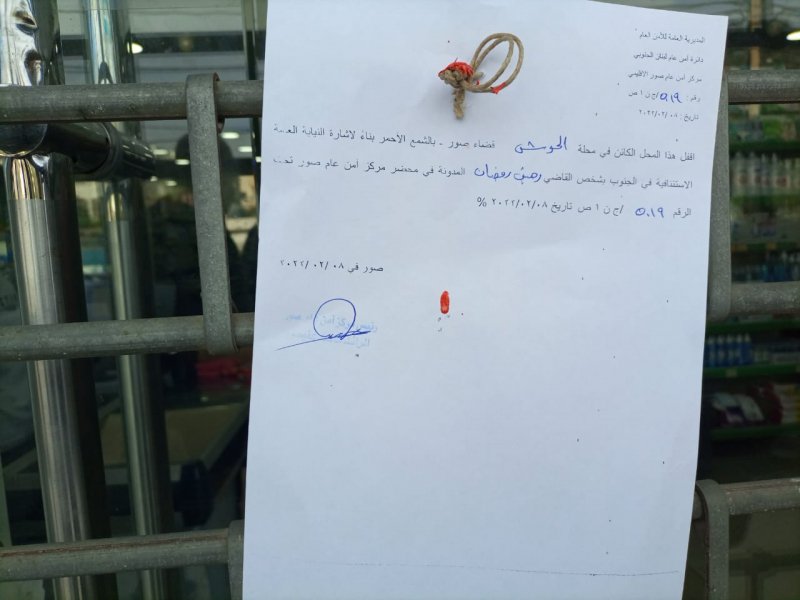 المديرية العامة للأمن العام
دائرة أمن عام لبنان الجنوبي
مركز أمن عام صور الاقليمي
رقم : ٥٠١٩ /ج ن ١ ص
تاريخ : ٢٠٢٢/٠٢/٠٨
اقفل هذا المحل الكائن في محلة الحوش قضاء صور - بالشمع الأحمر بناءً لاشارة النيابة العامة
الاستئنافية في الجنوب بشخص القاضي رهيف رمضان المدونة في محضر مركز أمن عام صور تحت
الرقم ٥٠١٩ /ج ن ١ ص تاريخ ٢٠٢٢/٠٢/٠٨ %
صور في ٢٠٢٢/٠٢/٠٨